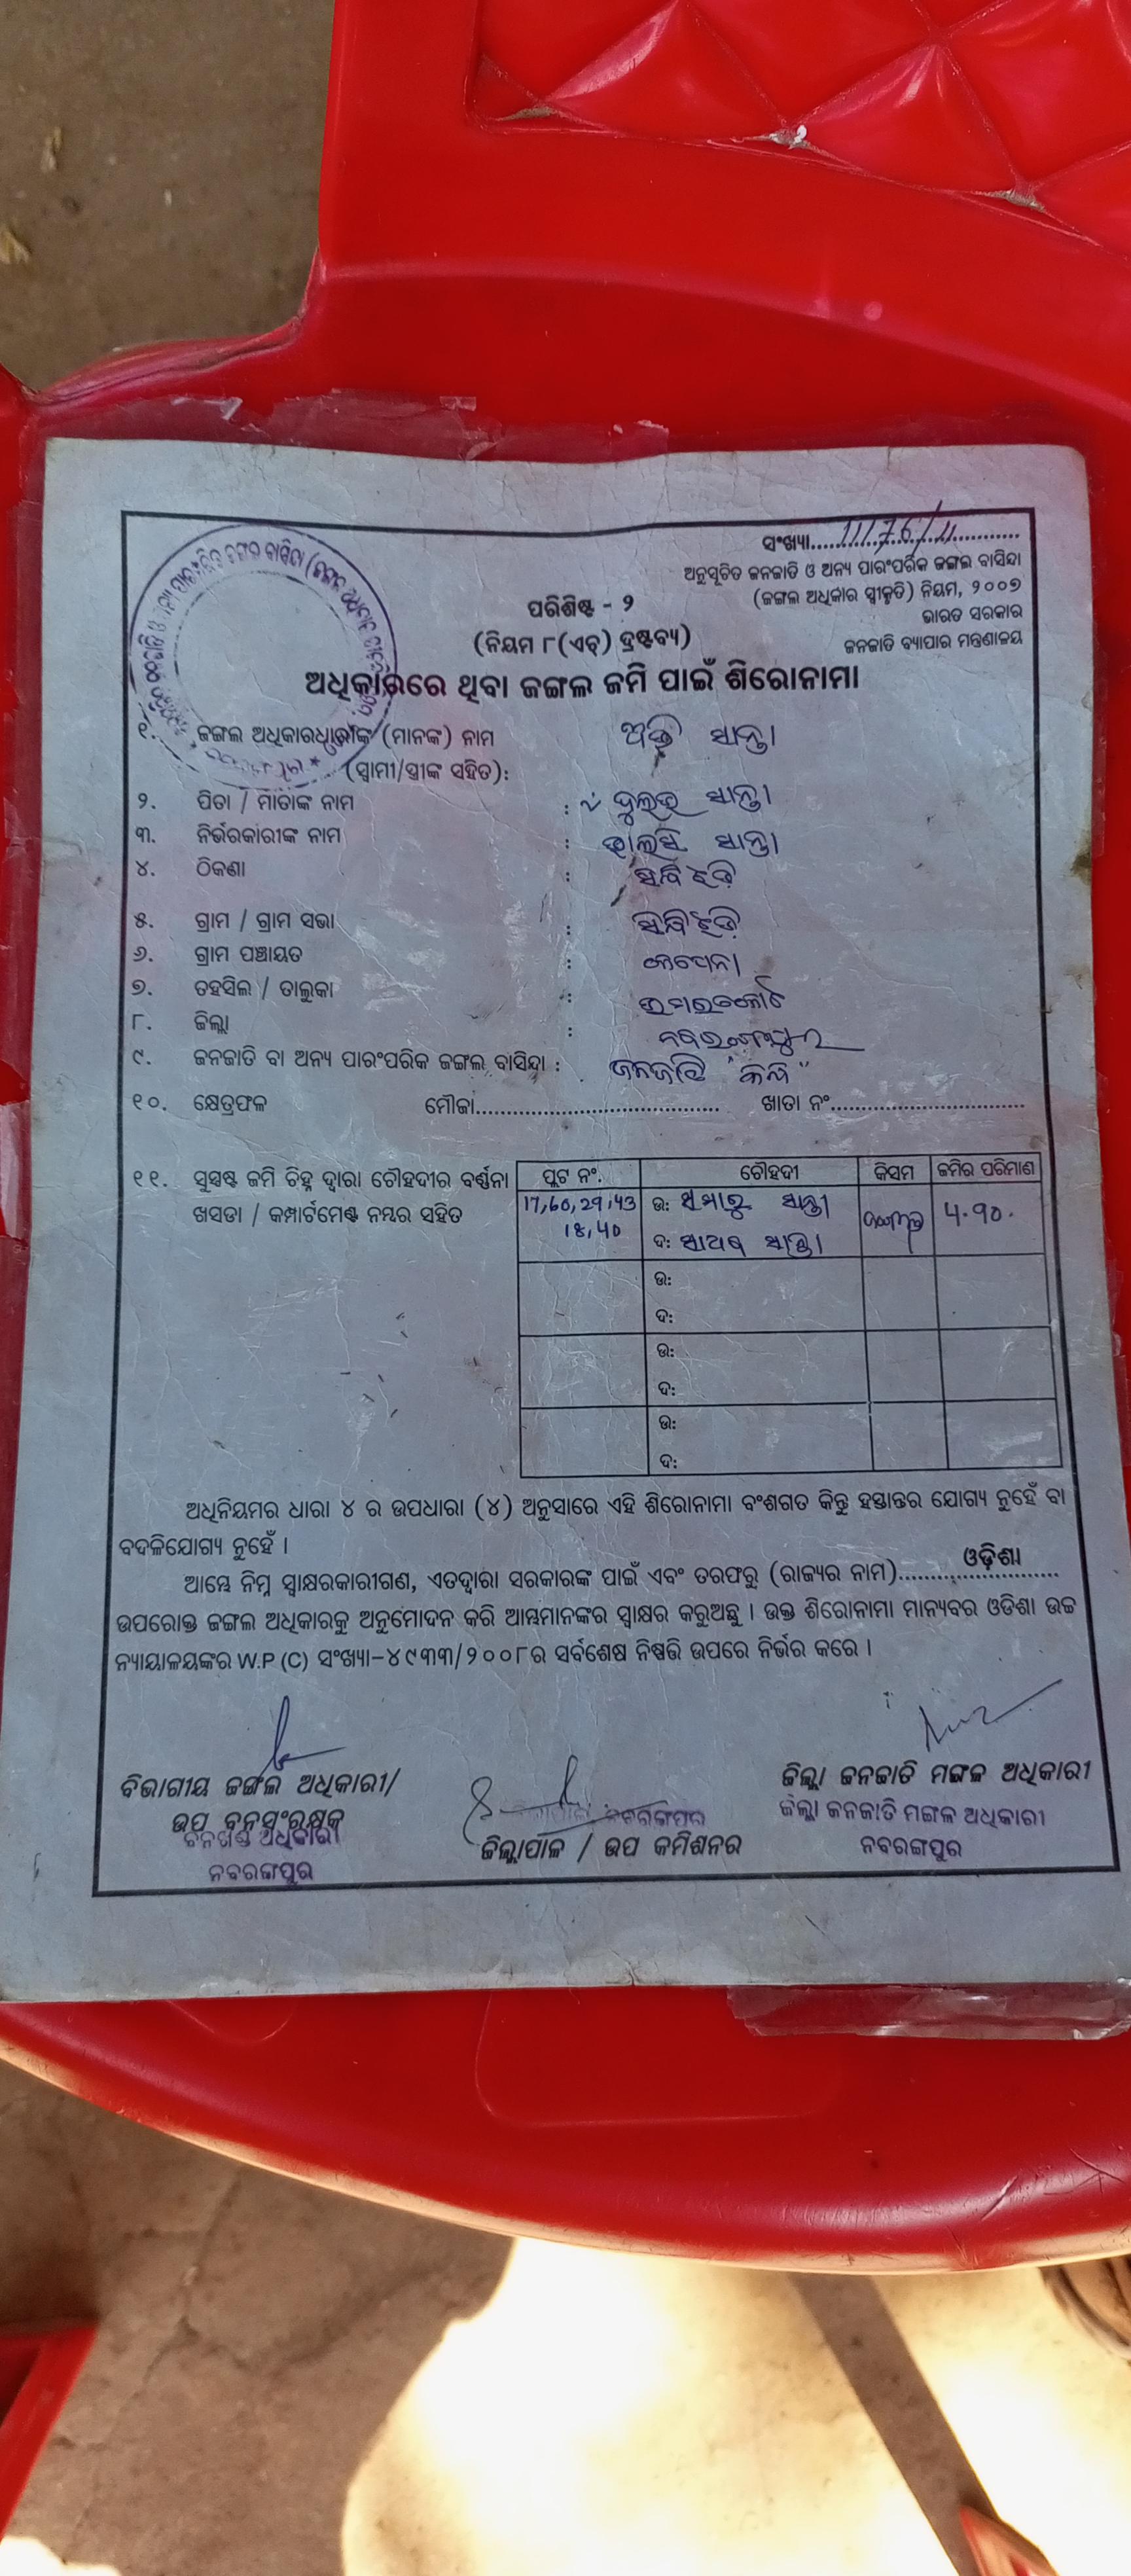 ସଂଖ୍ୟା...11176/11...
ଅନୁସୂଚିତ ଜନଜାତି ଓ ଅନ୍ୟ ପାରଂପରିକ ଜଙ୍ଗଲ ବାସିନ୍ଦା
(ଜଙ୍ଗଲ ଅଧିକାର ସ୍ୱୀକୃତି) ନିୟମ, ୨୦୦୭
ଭାରତ ସରକାର
ଜନଜାତି ବ୍ୟାପାର ମନ୍ତ୍ରଣାଳୟ
ପରିଶିଷ୍ଟ - ୨
(ନିୟମ ୮(ଏଚ୍) ଦ୍ରଷ୍ଟବ୍ୟ)
ଅଧିକାରରେ ଥିବା ଜଙ୍ଗଲ ଜମି ପାଇଁ ଶିରୋନାମା
୧. ଜଙ୍ଗଲ ଅଧିକାରଧାରୀଙ୍କ (ମାନଙ୍କ) ନାମ ସାନ୍ତା
(ସ୍ୱାମୀ/ସ୍ତ୍ରୀଙ୍କ ସହିତ):
୨. ପିତା / ମାତାଙ୍କ ନାମ : ସାନ୍ତା
୩. ନିର୍ଭରକାରୀଙ୍କ ନାମ : ସାନ୍ତା
୪. ଠିକଣା :
୫. ଗ୍ରାମ / ଗ୍ରାମ ସଭା :
୬. ଗ୍ରାମ ପଞ୍ଚାୟତ :
୭. ତହସିଲ / ତାଲୁକା : ଉମରକୋଟ
୮. ଜିଲ୍ଲା : ନବରଙ୍ଗପୁର
୯. ଜନଜାତି ବା ଅନ୍ୟ ପାରଂପରିକ ଜଙ୍ଗଲ ବାସିନ୍ଦା : ଜନଜାତି
୧୦. କ୍ଷେତ୍ରଫଳ ମୌଜା........ ଖାତା ନଂ........
୧୧. ସୁସ୍ପଷ୍ଟ ଜମି ଚିହ୍ନ ଦ୍ୱାରା ଚୌହଦୀର ବର୍ଣ୍ଣନା
ଖସଡା / କମ୍ପାର୍ଟମେଣ୍ଟ ନମ୍ବର ସହିତ
ପ୍ଲଟ ନଂ. ଚୌହଦୀ କିସମ ଜମିର ପରିମାଣ
17,60,29,43 ଉ:
18,40 ଦ: 4.90.
ଉ:
ଦ:
ଉ:
ଦ:
ଉ:
ଦ:
ଅଧିନିୟମର ଧାରା ୪ ର ଉପଧାରା (୪) ଅନୁସାରେ ଏହି ଶିରୋନାମା ବଂଶଗତ କିନ୍ତୁ ହସ୍ତାନ୍ତର ଯୋଗ୍ୟ ନୁହେଁ ବା
ବଦଳିଯୋଗ୍ୟ ନୁହେଁ ।
ଆମ୍ଭେ ନିମ୍ନ ସ୍ୱାକ୍ଷରକାରୀଗଣ, ଏତଦ୍ଵାରା ସରକାରଙ୍କ ପାଇଁ ଏବଂ ତରଫରୁ (ରାଜ୍ୟର ନାମ)....ଓଡ଼ିଶା....
ଉପରୋକ୍ତ ଜଙ୍ଗଲ ଅଧିକାରକୁ ଅନୁମୋଦନ କରି ଆମ୍ଭମାନଙ୍କର ସ୍ୱାକ୍ଷର କରୁଅଛୁ । ଉକ୍ତ ଶିରୋନାମା ମାନ୍ୟବର ଓଡିଶା ଉଚ୍ଚ
ନ୍ୟାୟାଳୟଙ୍କର W.P (C) ସଂଖ୍ୟା-୪୯୩୩/୨୦୦୮ର ସର୍ବଶେଷ ନିଷ୍ପତ୍ତି ଉପରେ ନିର୍ଭର କରେ ।
ବିଭାଗୀୟ ଜଙ୍ଗଲ ଅଧିକାରୀ/
ଉପ ବନସଂରକ୍ଷକ
ବନଖଣ୍ଡ ଅଧିକାରୀ
ନବରଙ୍ଗପୁର
ନବରଙ୍ଗପୁର
ଜିଲ୍ଲାପାଳ / ଉପ କମିଶନର
ଜିଲ୍ଲା ଜନଜାତି ମଙ୍ଗଳ ଅଧିକାରୀ
ଜିଲ୍ଲା ଜନଜାତି ମଙ୍ଗଳ ଅଧିକାରୀ
ନବରଙ୍ଗପୁର